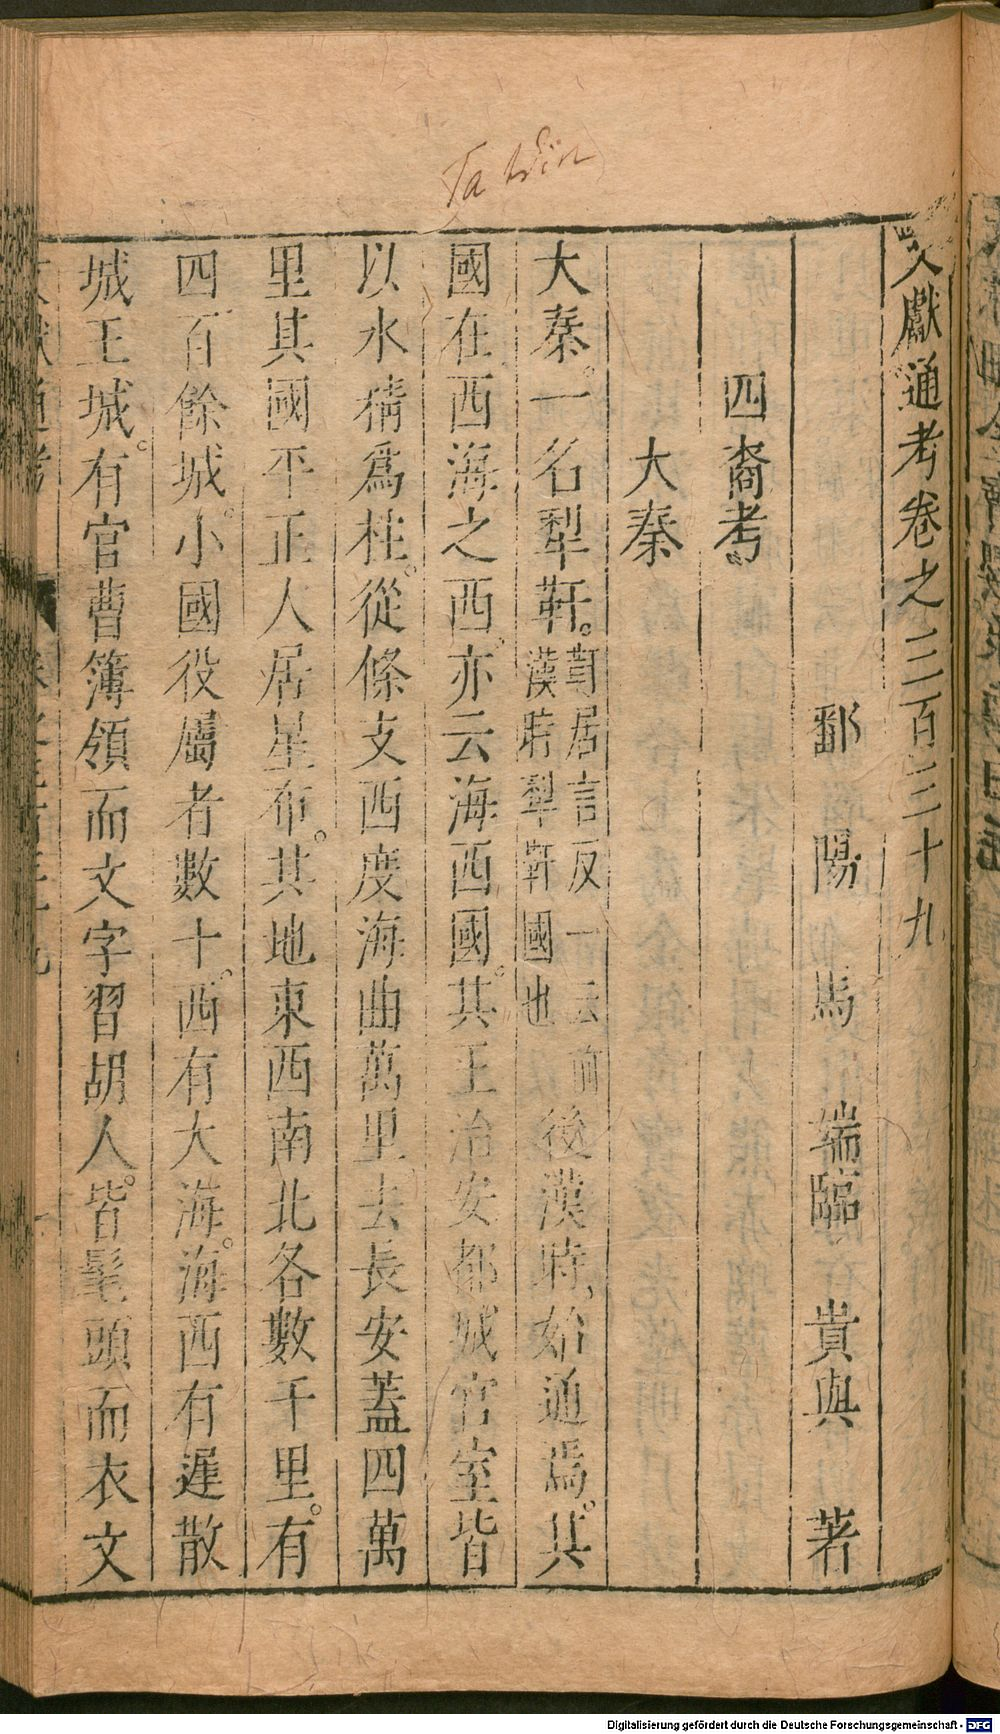 Ta tsin
文獻通考卷之三百三十九
鄱陽馬端臨貴與著
四裔考
大秦
大秦。一名犁靬。靬居言反一云前漢時犁軒國也後漢時、始通焉。其
國在西海之西、亦云海西國。其王治安都城官室皆
以水精爲柱。從條支西度海曲萬里、去長安蓋四萬
里其國平正人居星布。其地東西南北各數千里。有
四百餘城。小國役屬者數十。西有大海。海西有遲散
城王城。有官曹簿領而文字習胡人。皆髦頭而衣文
Digitalisierung gefördert durch die Deutsche Forschungsgemeinschaft - DFG